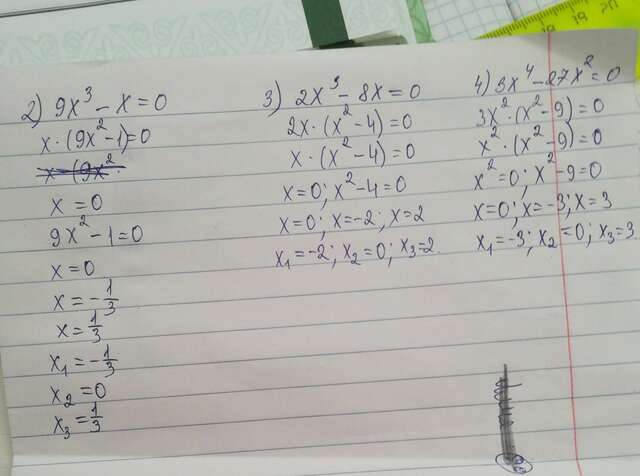 2) 9x³ - x = 0
x · (9x² - 1) = 0
x · (9x²
x = 0
9x² - 1 = 0
x = 0
x = -1/3
x = 1/3
x₁ = -1/3
x₂ = 0
x₃ = 1/3
3) 2x³ - 8x = 0
2x · (x² - 4) = 0
x · (x² - 4) = 0
x = 0; x² - 4 = 0
x = 0; x = -2; x = 2
x₁ = -2; x₂ = 0; x₃ = 2.
4) 3x⁴ - 27x² = 0
3x² · (x² - 9) = 0
x² · (x² - 9) = 0
x² = 0; x² - 9 = 0
x = 0; x = -3; x = 3
x₁ = -3; x₂ = 0; x₃ = 3